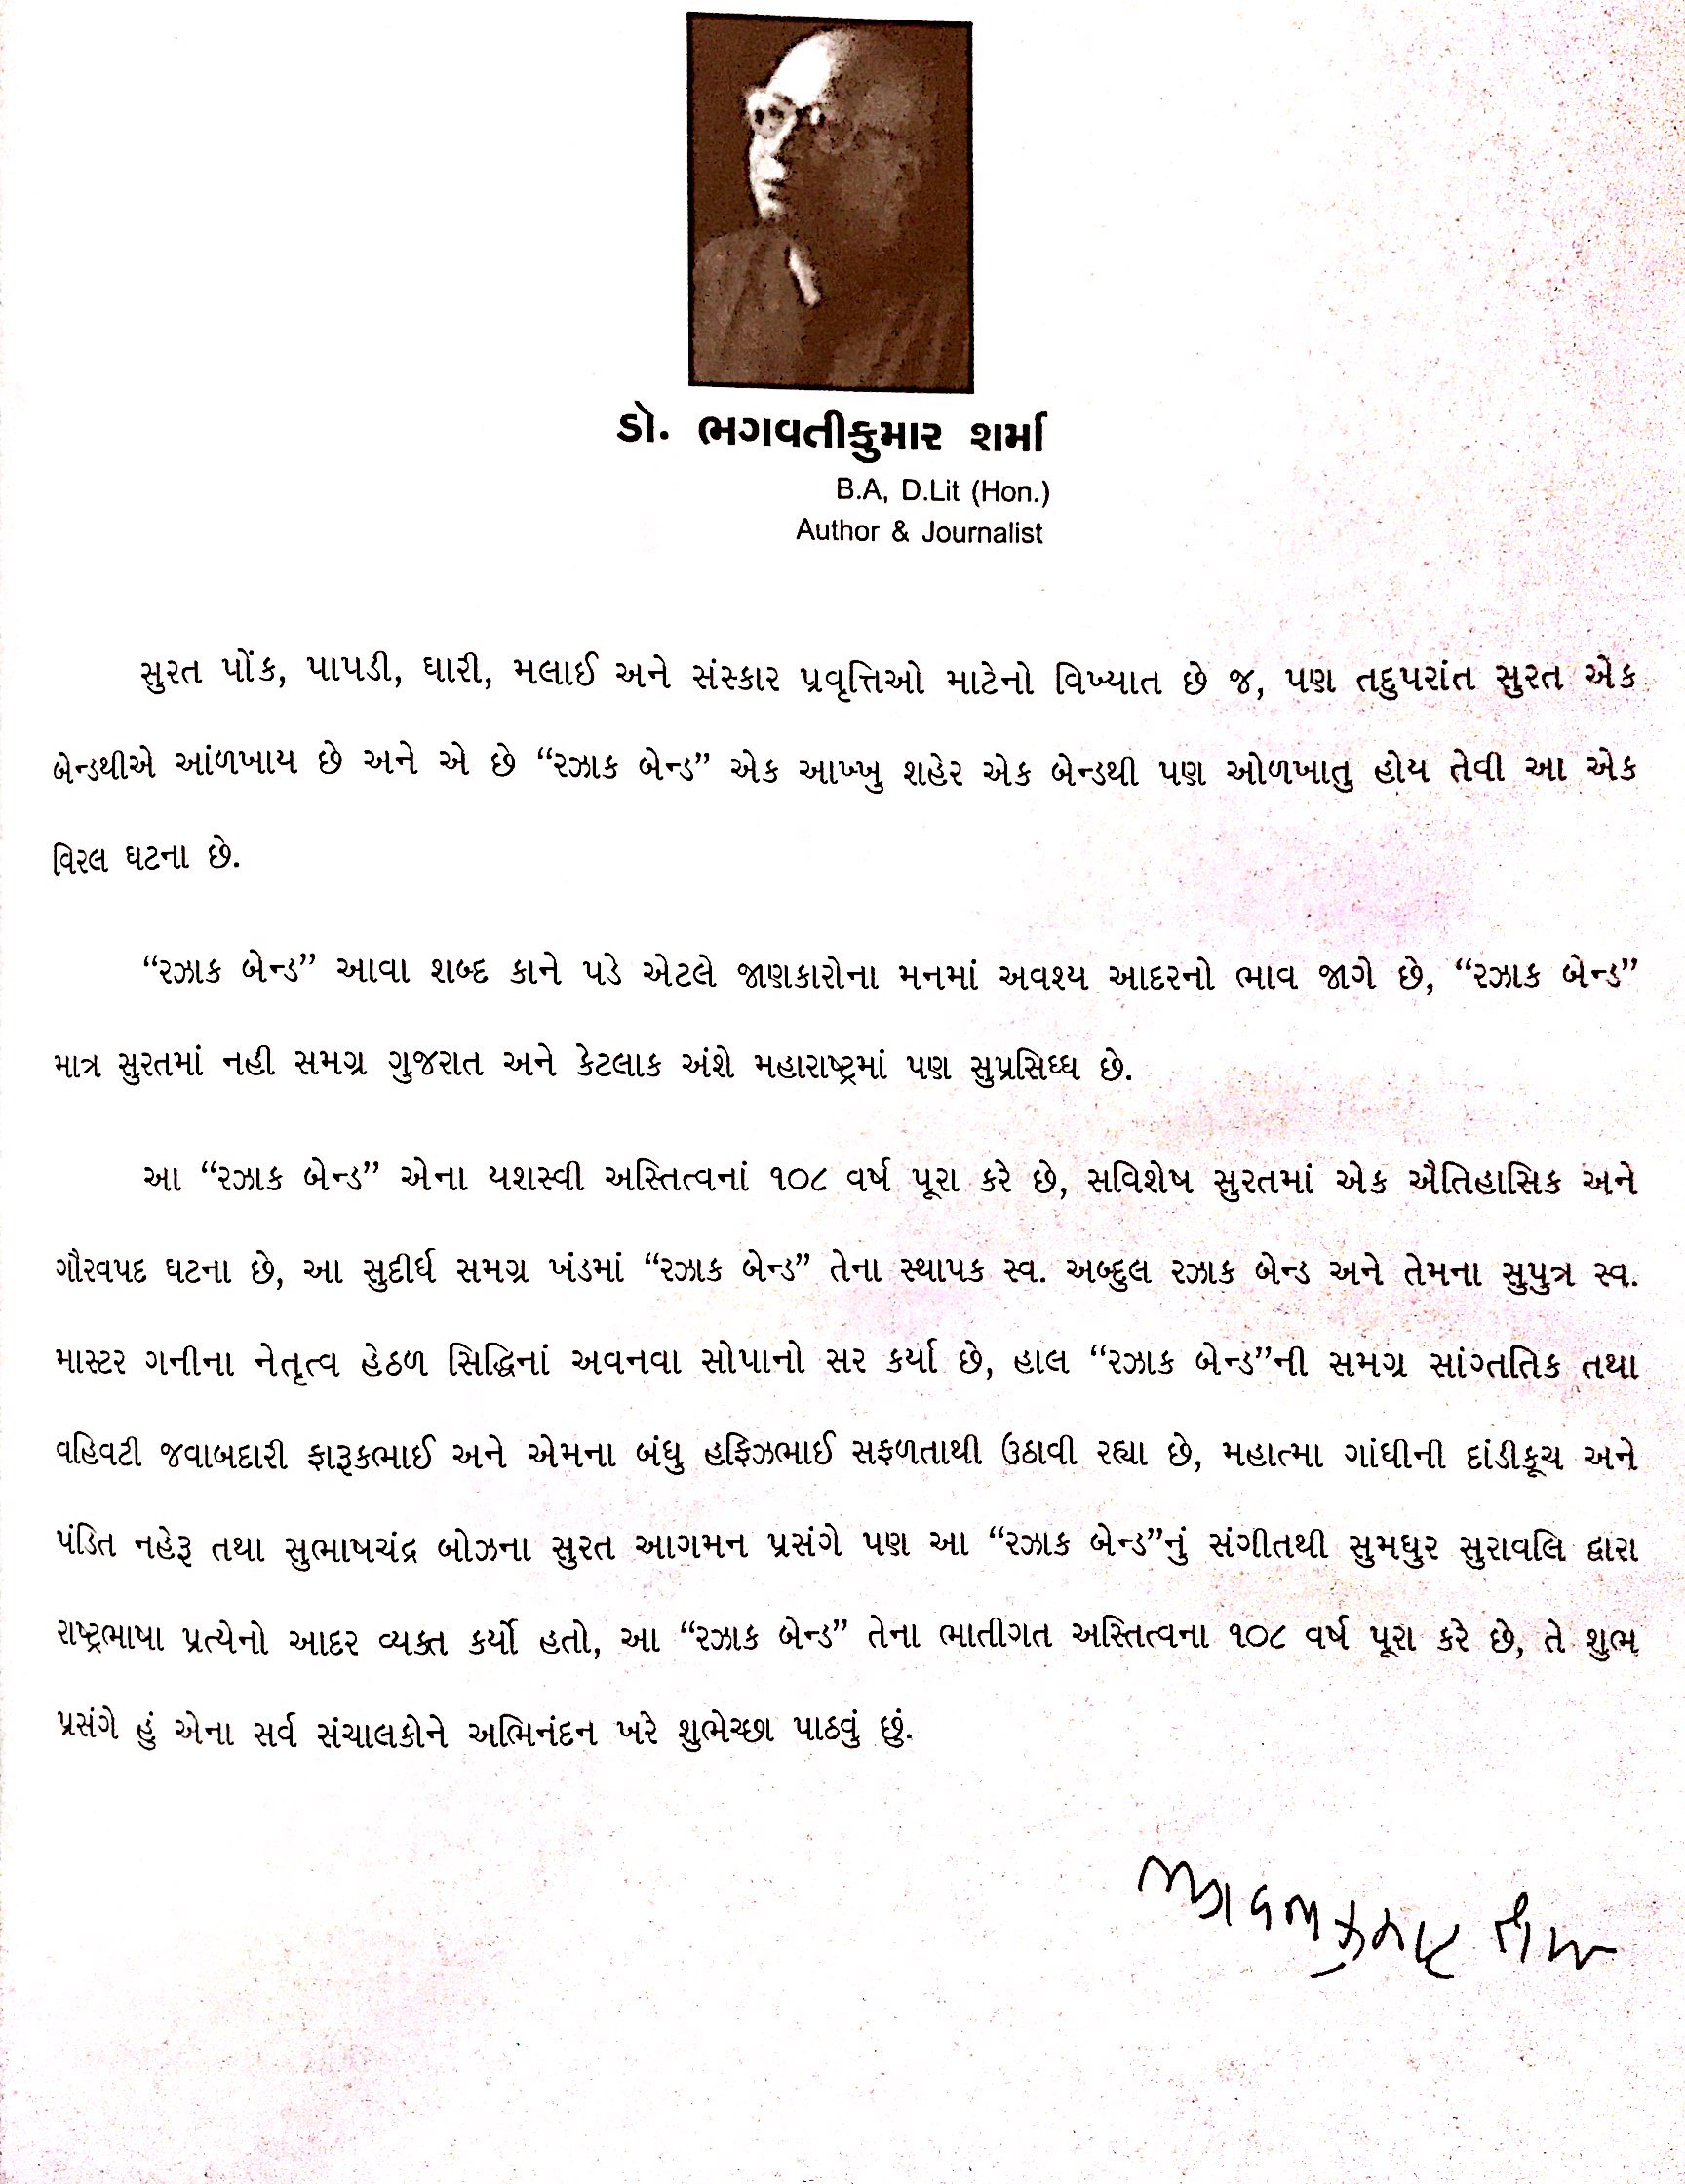 ડો. ભગવતીકુમાર શર્મા
B.A, D.Lit (Hon.)
Author & Journalist
સુરત પોંક, પાપડી, ઘારી, મલાઈ અને સંસ્કાર પ્રવૃત્તિઓ માટેનો વિખ્યાત છે જ, પણ તદુપરાંત સુરત એક
બેન્ડથીએ આંળખાય છે અને એ છે “રઝાક બેન્ડ” એક આખ્ખુ શહેર એક બેન્ડથી પણ ઓળખાતુ હોય તેવી આ એક
વિરલ ઘટના છે.
“રઝાક બેન્ડ” આવા શબ્દ કાને પડે એટલે જાણકારોના મનમાં અવશ્ય આદરનો ભાવ જાગે છે, “રઝાક બેન્ડ”
માત્ર સુરતમાં નહી સમગ્ર ગુજરાત અને કેટલાક અંશે મહારાષ્ટ્રમાં પણ સુપ્રસિધ્ધ છે.
આ “રઝાક બેન્ડ” એના યશસ્વી અસ્તિત્વનાં ૧૦૮ વર્ષ પૂરા કરે છે, સવિશેષ સુરતમાં એક ઐતિહાસિક અને
ગૌરવપદ ઘટના છે, આ સુદીર્ઘ સમગ્ર ખંડમાં “રઝાક બેન્ડ” તેના સ્થાપક સ્વ. અબ્દુલ રઝાક બેન્ડ અને તેમના સુપુત્ર સ્વ.
માસ્ટર ગનીના નેતૃત્વ હેઠળ સિદ્ધિનાં અવનવા સોપાનો સર કર્યા છે, હાલ “રઝાક બેન્ડ”ની સમગ્ર સાંગ્તતિક તથા
વહિવટી જવાબદારી ફારૂકભાઈ અને એમના બંધુ હફિઝભાઈ સફળતાથી ઉઠાવી રહ્યા છે, મહાત્મા ગાંધીની દાંડીકૂચ અને
પંડિત નહેરૂ તથા સુભાષચંદ્ર બોઝના સુરત આગમન પ્રસંગે પણ આ “રઝાક બેન્ડ”નું સંગીતથી સુમધુર સુરાવલિ દ્વારા
રાષ્ટ્રભાષા પ્રત્યેનો આદર વ્યક્ત કર્યો હતો, આ “રઝાક બેન્ડ” તેના ભાતીગત અસ્તિત્વના ૧૦૮ વર્ષ પૂરા કરે છે, તે શુભ
પ્રસંગે હું એના સર્વ સંચાલકોને અભિનંદન ખરે શુભેચ્છા પાઠવું છું.
ભગવતીકુમાર શર્મા